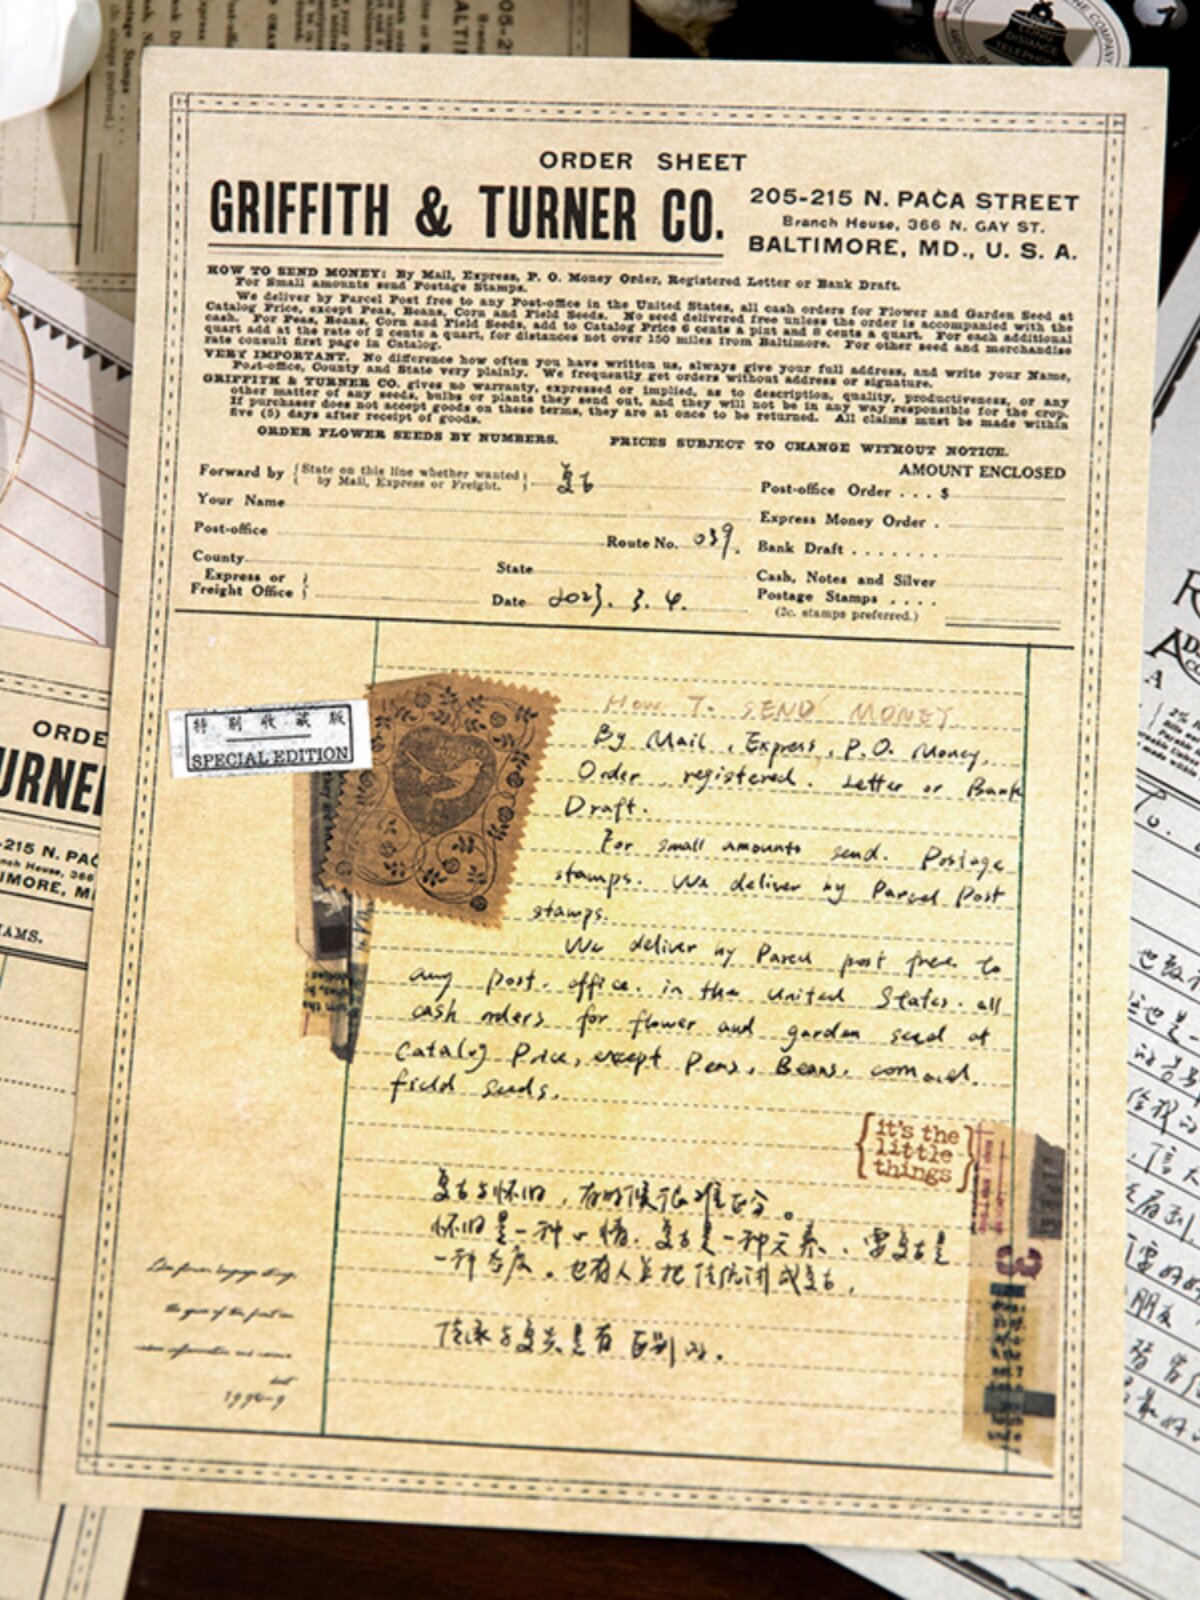 ORDER SHEET
GRIFFITH & TURNER CO.
205-215 N. PACA STREET
Branch House, 366 N. GAY ST.
BALTIMORE, MD., U. S. A.
HOW TO SEND MONEY: By Mail, Express, P. O. Money Order, Registered Letter or Bank Draft.
For Small amounts send Postage Stamps.
We deliver by Parcel Post free to any Post-office in the United States, all cash orders for Flower and Garden Seed at
Catalog Price, except Peas, Beans, Corn and Field Seeds. No seed delivered free unless the order is accompanied with the
cash. For Peas, Beans, Corn and Field Seeds, add to Catalog Price 6 cents a pint and 8 cents a quart. For each additional
quart add at the rate of 2 cents a quart, for distances not over 150 miles from Baltimore. For other seed and merchandise
rate consult first page in Catalog.
VERY IMPORTANT. No difference how often you have written us, always give your full address, and write your Name,
Post-office, County and State very plainly. We frequently get orders without address or signature.
GRIFFITH & TURNER CO. gives no warranty, expressed or implied, as to description, quality, productiveness, or any
other matter of any seeds, bulbs or plants they send out, and they will not be in any way responsible for the crop.
If purchaser does not accept goods on these terms, they are at once to be returned. All claims must be made within
five (5) days after receipt of goods.
ORDER FLOWER SEEDS BY NUMBERS. PRICES SUBJECT TO CHANGE WITHOUT NOTICE.
AMOUNT ENCLOSED
Forward by {State on this line whether wanted by Mail, Express or Freight.} 复古
Post-office Order . . . $
Your Name
Express Money Order .
Post-office
Route No. 039.
Bank Draft . . . . . . .
County
State
Cash, Notes and Silver
Express or Freight Office }
Date 2023. 3. 4.
Postage Stamps . . . .
(2c. stamps preferred.)
特别收藏版
SPECIAL EDITION
HOW TO SEND MONEY
By Mail, Express, P.O. Money,
Order, registered. Letter or Bank
Draft.
For small amounts send. Postage
stamps. We deliver by Parcel Post
stamps.
We deliver by Parcel post free to
any post. office. in the United States. all
cash orders for flower and garden seed at
Catalog Price, except Peas, Beans. corn and.
field seeds.
{it's the
little
things}
复古与怀旧，有时候很难区分。
怀旧是一种心情．复古是一种元素．
一种态度。也有人总把传统讲成复古．
传承与复兴是有区别的．